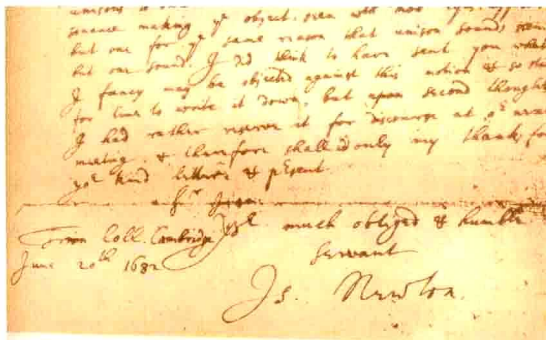 unisons to our
sonance making ye object seen with two eyes appear
but one for ye same reason that unison sounds seem
but one sound. I had think to have sent you what
I fancy may be objected against this notion & so staid
for time to write it down, but upon second thoughts
I had rather reserve it for discourse at or next
meeting: & therefore shall add only my thanks for
yor kind letter & present.
Sr I am
Yor much obliged & humble
Trin Coll. Cambridge
Servant
June 20th 1682
Is. Newton.